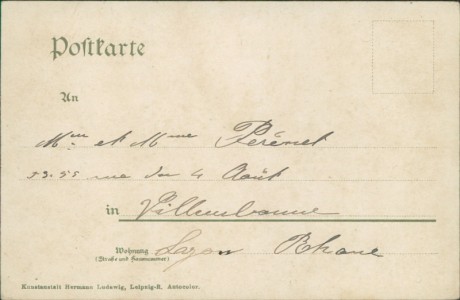 Postkarte
An
Mon et Mme Pérénet
53-55 rue du 4 Août
in Villeurbanne
Wohnung Lyon Rhone
(Straße und Hausnummer)
Kunstanstalt Hermann Ludewig, Leipzig-R. Autocolor.